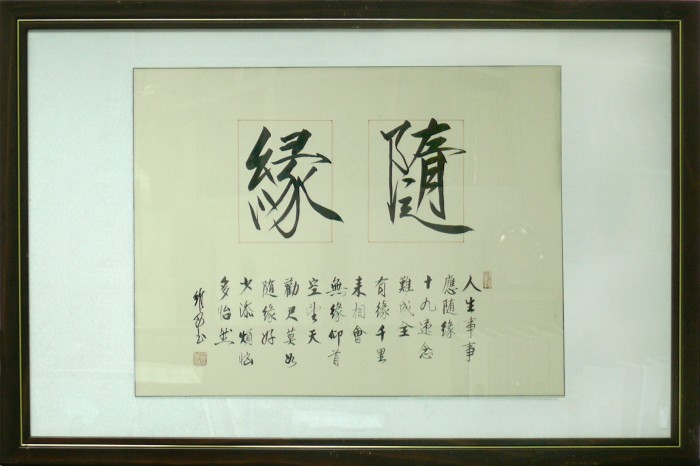 隨緣
人生事事
應隨緣
十九違念
難成全
有緣千里
来相會
無緣仰首
空望天
勸君莫如
隨緣好
少添煩惱
多怡然